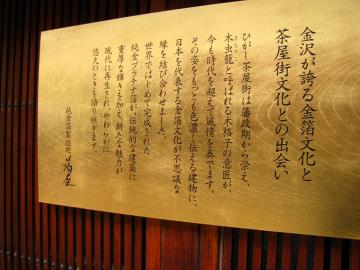 金沢が誇る金箔文化と
茶屋街文化との出会い
ひがし茶屋街は藩政期から栄え、
木虫籠と呼ばれる木格子の意匠が、
今も時代を超えて風情を奏でます。
その姿をもっとも色濃く伝える建物に、
日本を代表する金箔文化が不思議な
縁を結び合わせました。
世界ではじめて完成された
純金プラチナ箔が、伝統的な建築に
重厚な輝きを加え、新たな魅力が
現代に再生され、やわらかに
悠久のときを語り継ぎます。
純金箔製造院